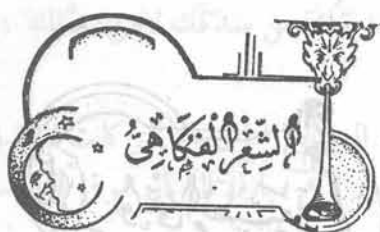 الشِّعْرُ الْفُكَاهِىُّ